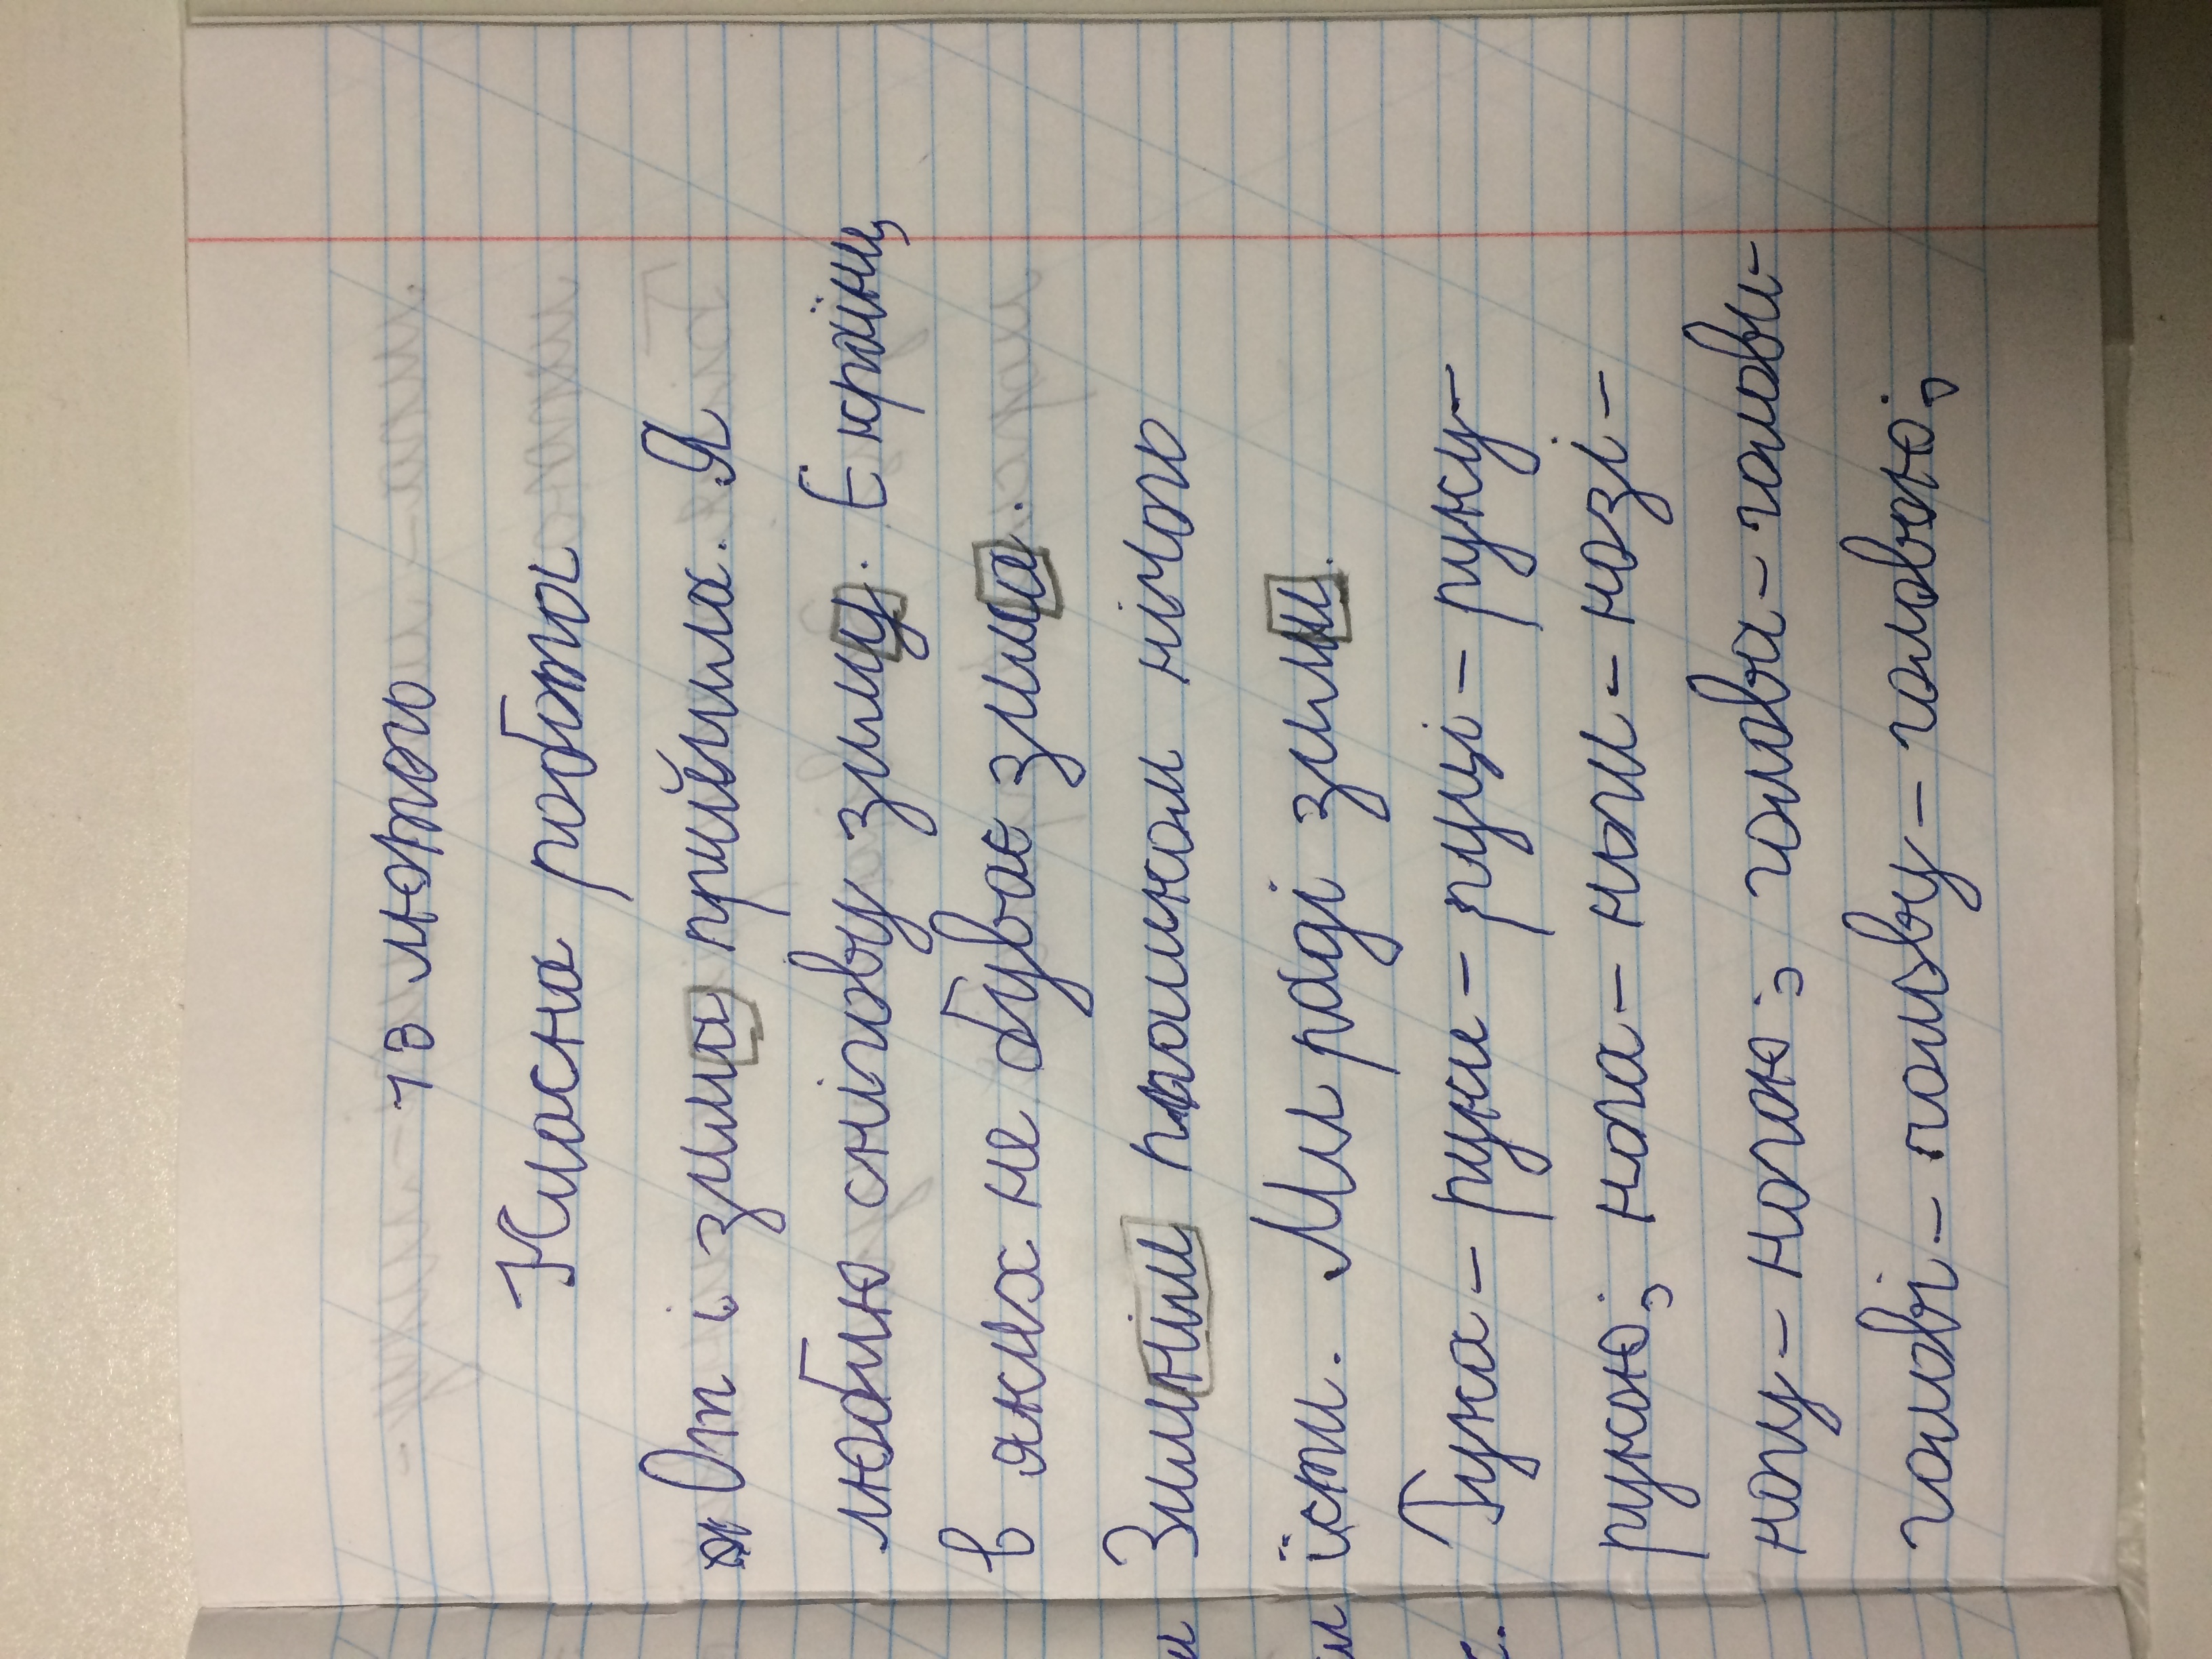 13 лютого
Класна робота
От і зима прийшла. Я
люблю снігову зиму. Є країни,
в яких не буває зима.
Зимнім пташкам нічого
їсти. Ми раді зими.
Рука - руки - руці - руку -
рукою; нога - ноги - нозі -
ногу - ногою; голова - голови -
голові - голову - головою;